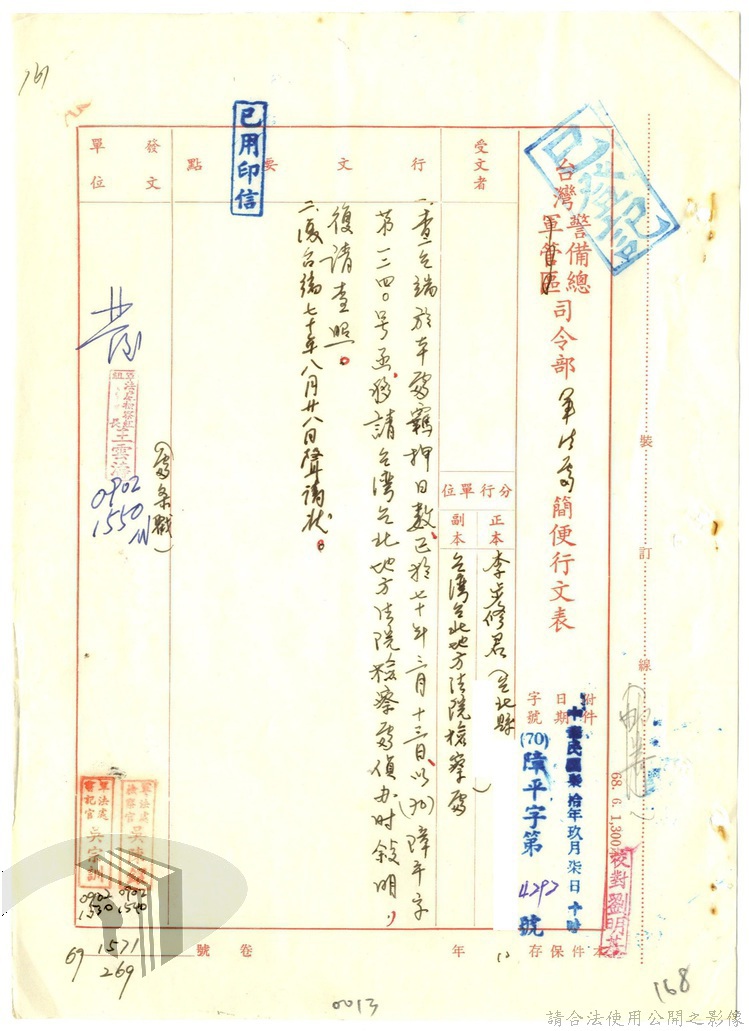 161
已登記
台灣警備總司令部
軍管區
軍法處
簡便行文表
附件
日期
字號
中華民國柒拾年玖月柒日十時
(70)障平字第4292號
受文者
分行單位
正本
李
修君(台北縣
副本
台灣台北地方法院檢察處
行文要點
一、查
端於本處羈押日數,已於七十年三月十三日,以(70)障平字
第一三四○號函
請台灣台北地方法院檢察處偵办时敘明,
復請查照。
二、復台端七十年八月廿八日聲請狀。
已用印信
發文單位
(處条戳)
0902
1550
軍法處
檢察官
吳
0902
1540
軍法處
書記官
吳
訓
0902
1530
裝訂線
68. 6. 1,300
校對劉明
本件保存
12
年
卷號
69
1571
269
168
0013
請合法使用公開之影像